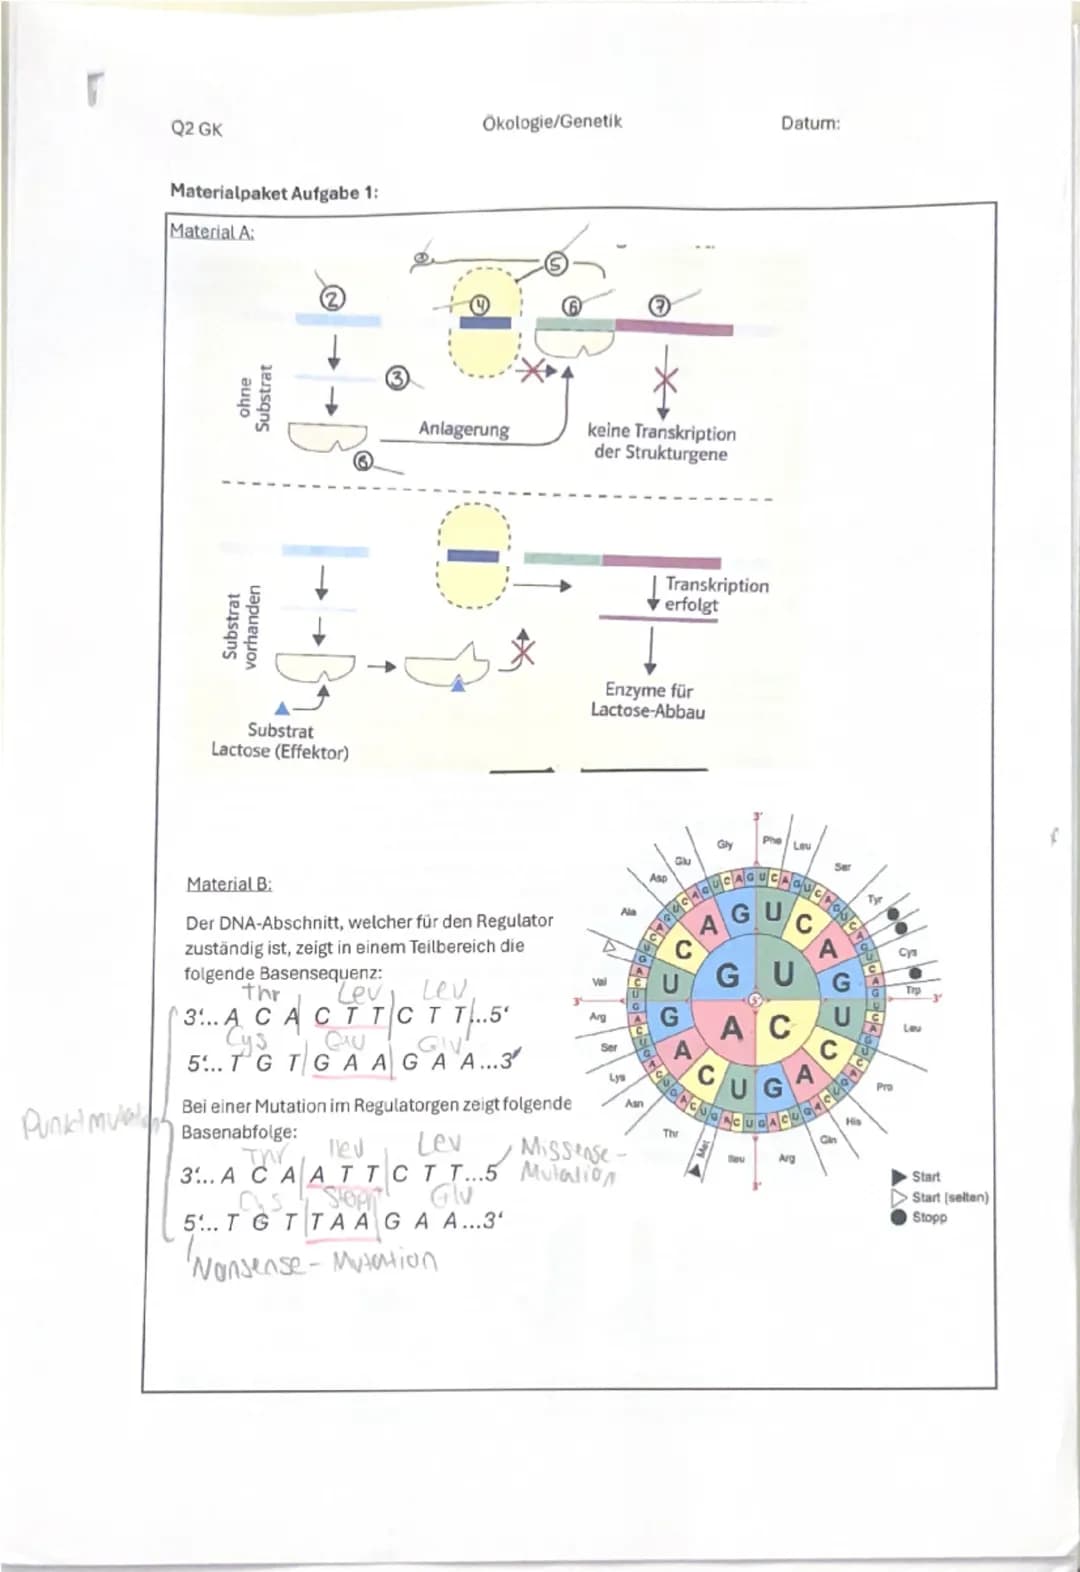 Q2 GK
Ökologie/Genetik
Datum:
Materialpaket Aufgabe 1:
Material A:
2
4
5
6
7
3
8
ohne
Substrat
Anlagerung
keine Transkription
der Strukturgene
Substrat
vorhanden
Transkription
erfolgt
Enzyme für
Lactose-Abbau
Substrat
Lactose (Effektor)
Material B:
Der DNA-Abschnitt, welcher für den Regulator
zuständig ist, zeigt in einem Teilbereich die
folgende Basensequenz:
Thr Leu Leu
3‘... A C A C T T C T T...5‘
Cys Glu Glu
5‘... T G T G A A G A A...3‘
Punktmutation
Bei einer Mutation im Regulatorgen zeigt folgende
Basenabfolge:
Thr Ileu Leu
3‘... A C A A T T C T T...5
Missense-
Mutation
Cys Stopp Glu
5‘... T G T T A A G A A...3‘
Nonsense-Mutation
3'
Gly
Phe
Leu
Glu
Ser
Asp
Tyr
Ala
Cys
Val
Trp
3'
3'
Arg
Leu
Ser
Lys
Pro
Asn
His
Thr
Gln
Met
Ileu
Arg
3'
G U
A C
5'
Start
Start (selten)
Stopp